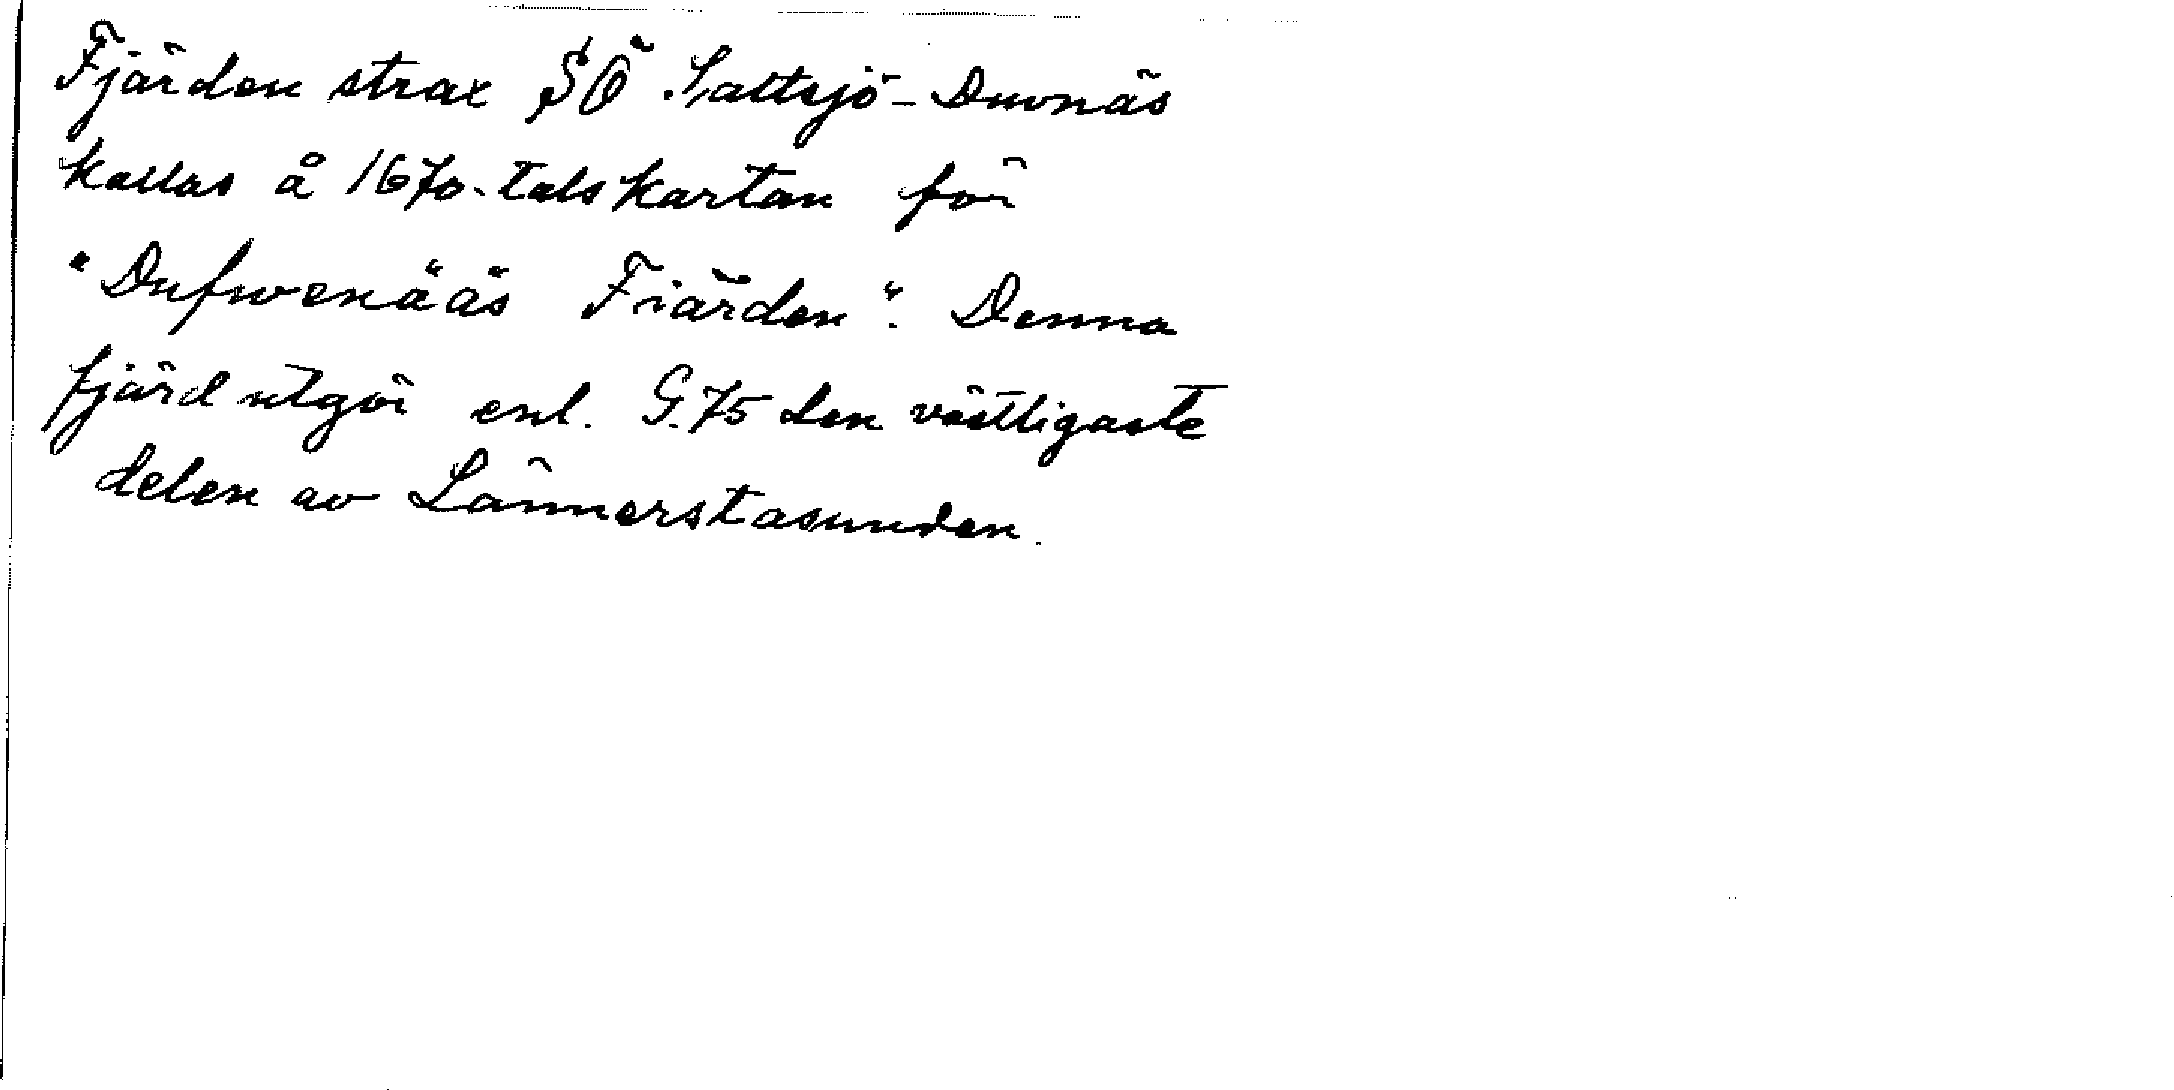 Fjärden strax SÖ Saltsjö-Duvnäs
kallas å 1670-talskartan för
"Dufwenääs Fiärden". Denna
fjärd utgör enl. G.75 den västligaste
delen av Lännerstasunden.